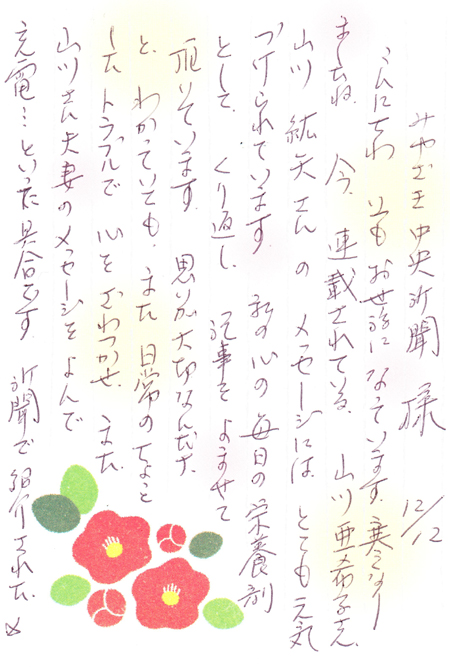 みやざき中央新聞 様
12/12
こんにちわ いつもお世話になっています。寒くなり
ましたね。 今、連載されている、山川 亜希子さん、
山川 紘矢さん の メッセージには とても元気
づけられています。 私の心の 毎日の 栄養剤
として、くり返し、記事を よませて
頂いています。 思いが大切なんだナ、
と、わかっていても、また 日常の ちょっと
した トラブルで 心を ざわつかせ、また、
山川さん夫妻のメッセージをよんで
充電… といった具合です。 新聞で紹介された、